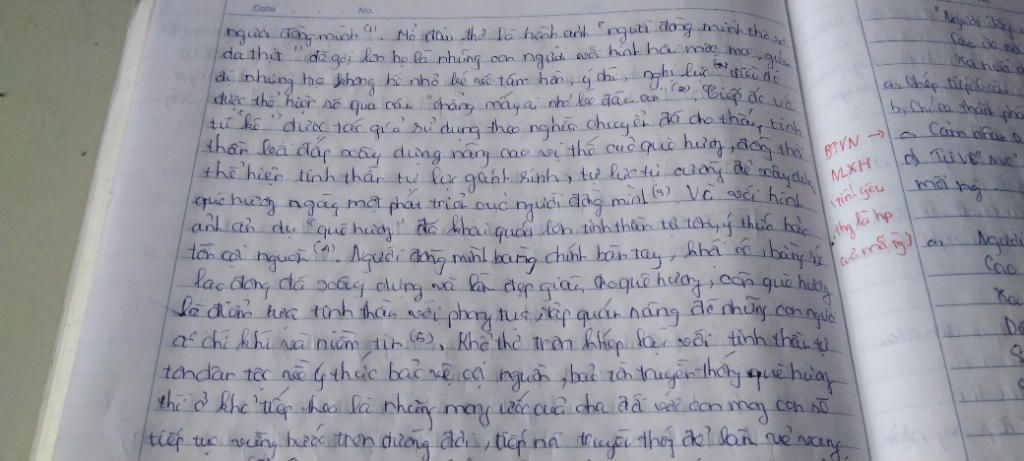 Date No.
người đồng mình (1). Mở đầu thơ là hình ảnh "người đồng mình thô sơ
da thịt" để gọi lên họ là những con người với hình hài mộc mạc, giản
dị nhưng họ không hề nhỏ bé về tâm hồn, ý chí, nghị lực điều đó
được thể hiện rõ qua câu "chẳng mấy ai nhỏ bé đâu con" (2). Tiếp đó
từ "kê" được tác giả sử dụng theo nghĩa chuyển đã cho thấy tinh
thần xây dựng nâng cao vị thế của quê hương, đồng thời
thể hiện tinh thần tự lực gánh sinh, tự lực tự cường để xây dựng
quê hương ngày một phát triển của người đồng mình (3). Và với hình
ảnh ẩn dụ "quê hương" đã khái quát lên tinh thần tự tôn, ý thức bảo
tồn cội nguồn (4). Người đồng mình bằng chính bàn tay, khối óc, bằng sức
lao động đã xây dựng và làm đẹp giàu cho quê hương, còn quê hương
là điểm tựa tinh thần với phong tục tiếp nâng để những con người
có chí khí và niềm tin (5). Khổ thơ trên khép lại với tinh thần tự
tôn dân tộc về ý thức bảo vệ cội nguồn, bảo tồn truyền thống quê hương
thì ở khổ tiếp theo là những mong ước của cha đối với con mong con sẽ
tiếp tục vững bước trên đường đời, tiếp nối truyền thống để làm vẻ vang
BTVN →
NLXH
mỗi ng)
"Người đồng
a, chép tiếp
b, Chỉ ra thành phần
c, Cảm nhận
d) Từ VB
mỗi ng
a, Người
Cao
Xa